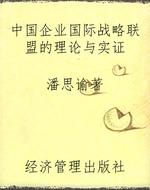 中国企业国际战略联
盟的理论与实证
潘思谕著
经济管理出版社